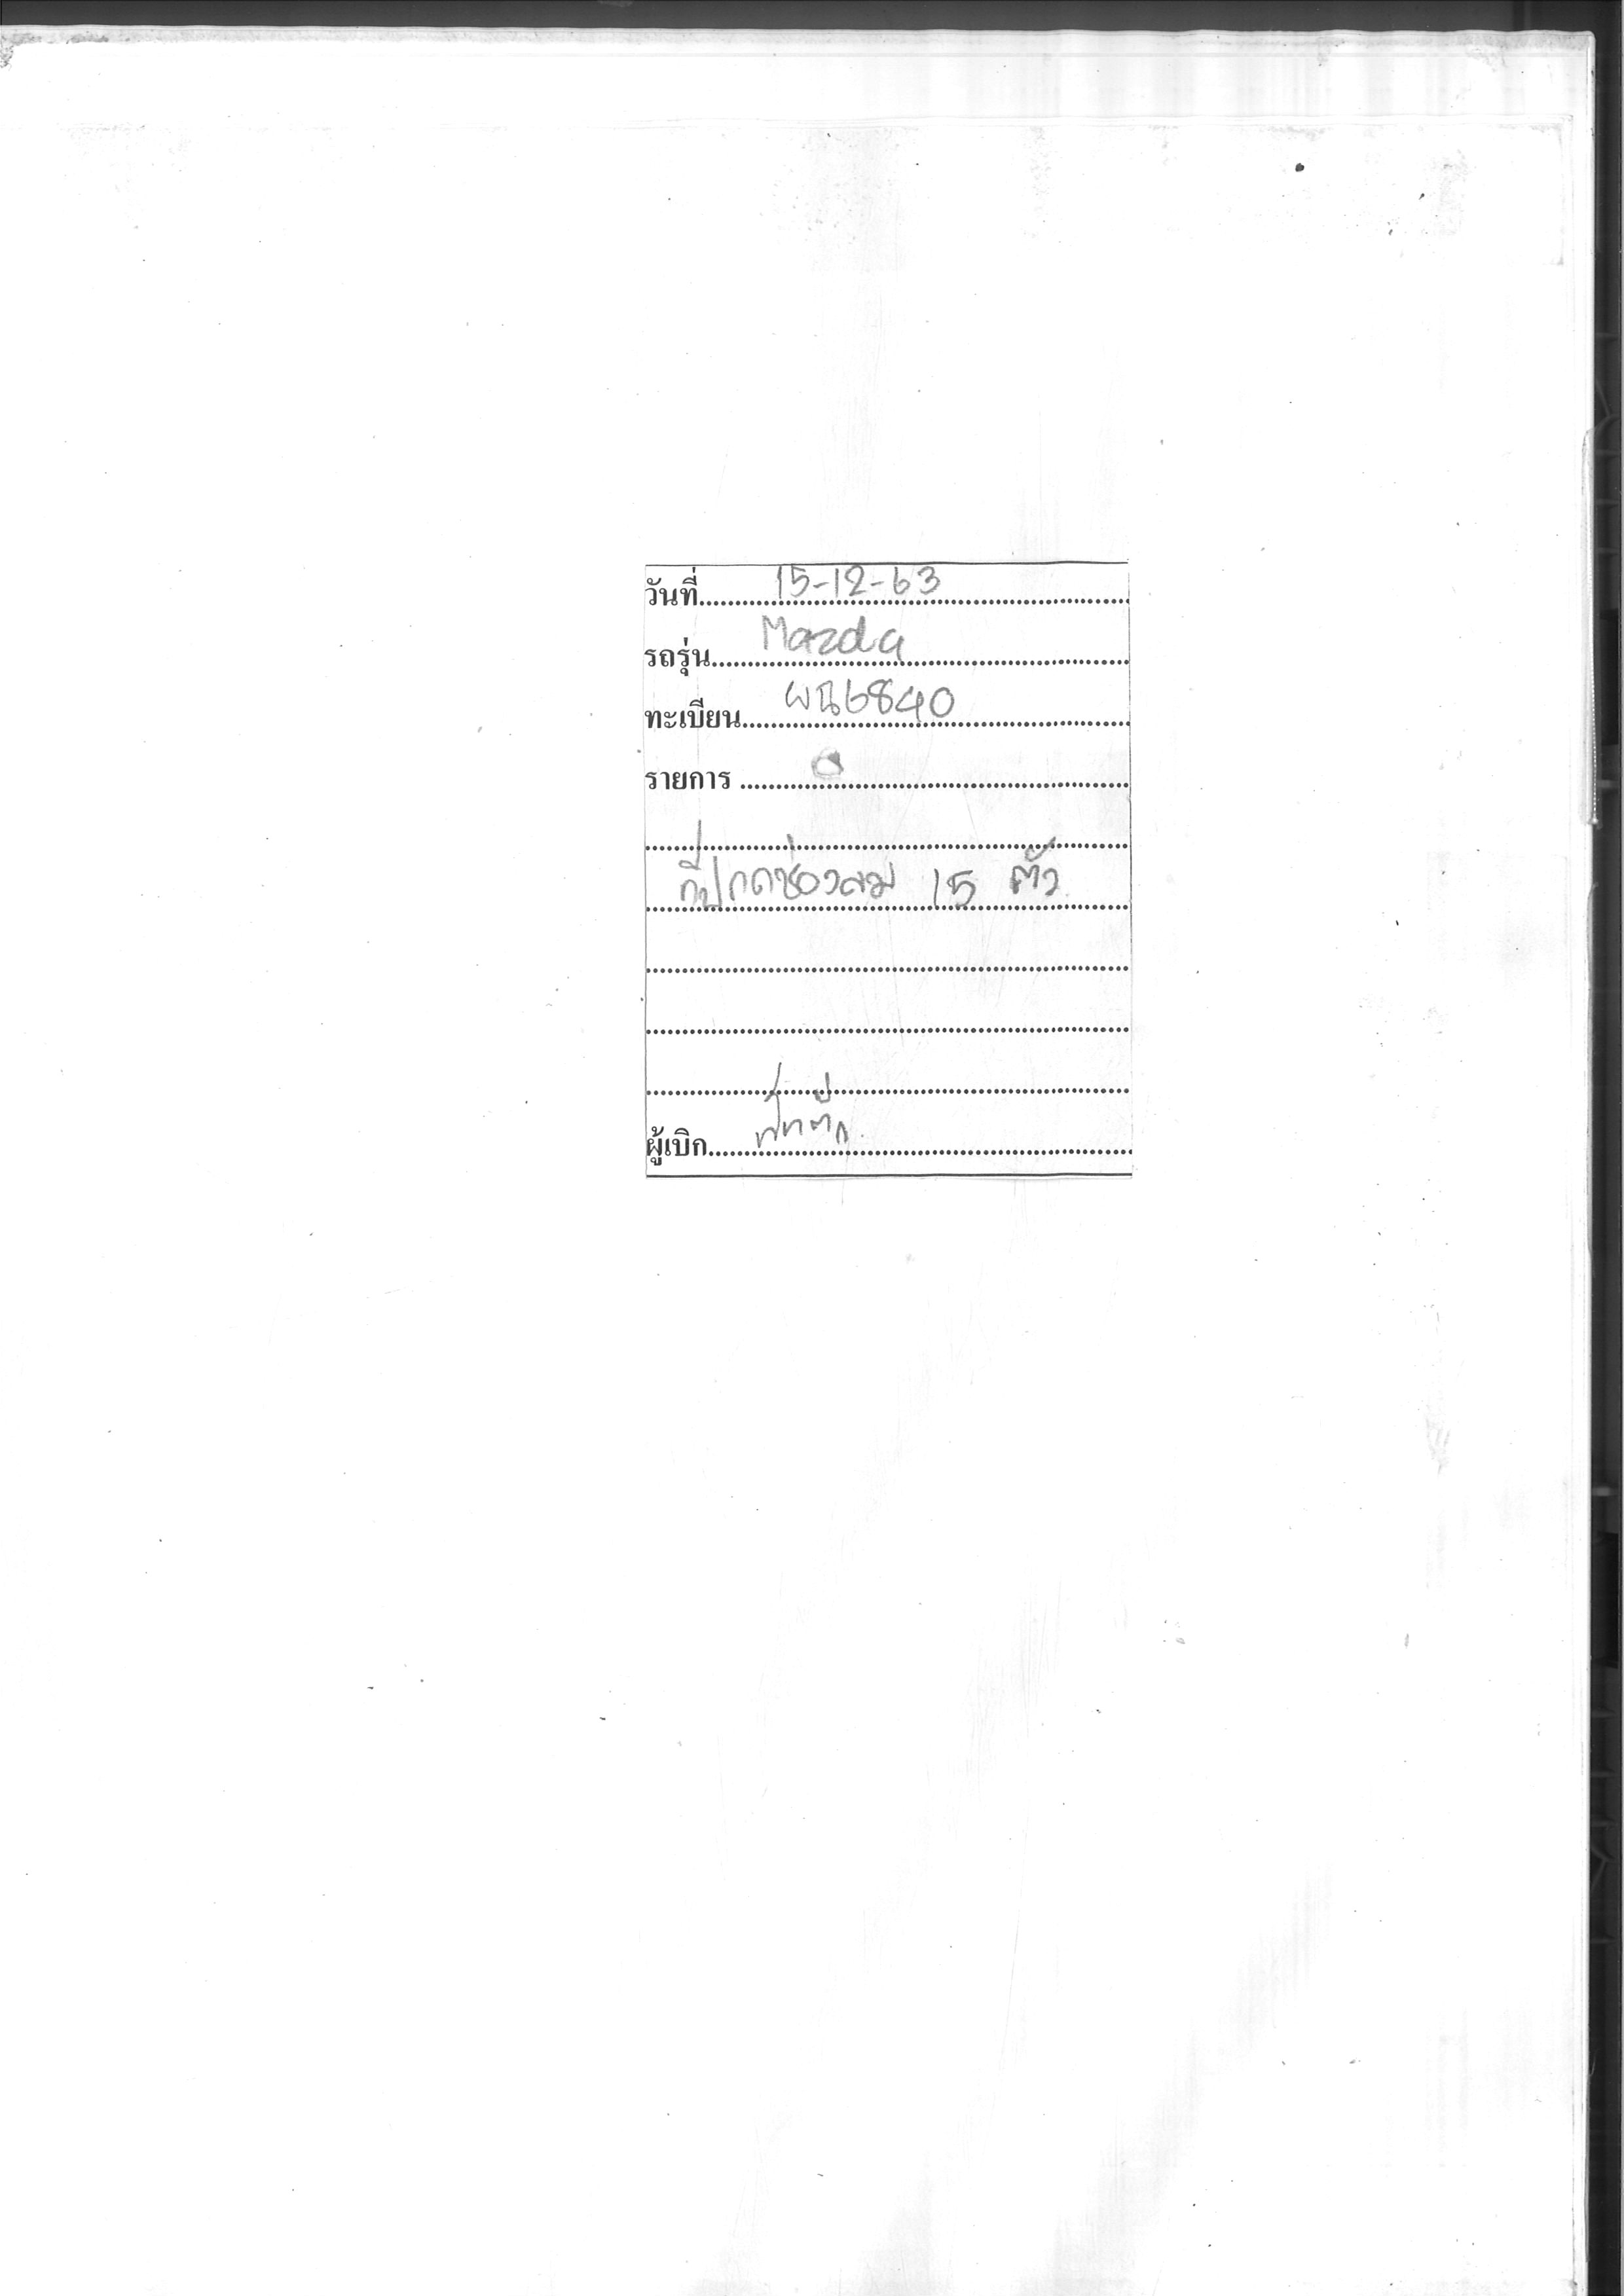 วันที่ 15-12-63
รถรุ่น Mazda
ทะเบียน ผฉ6840
รายการ
กี๊ปกดช่องลม 15 ตัว
ผู้เบิก